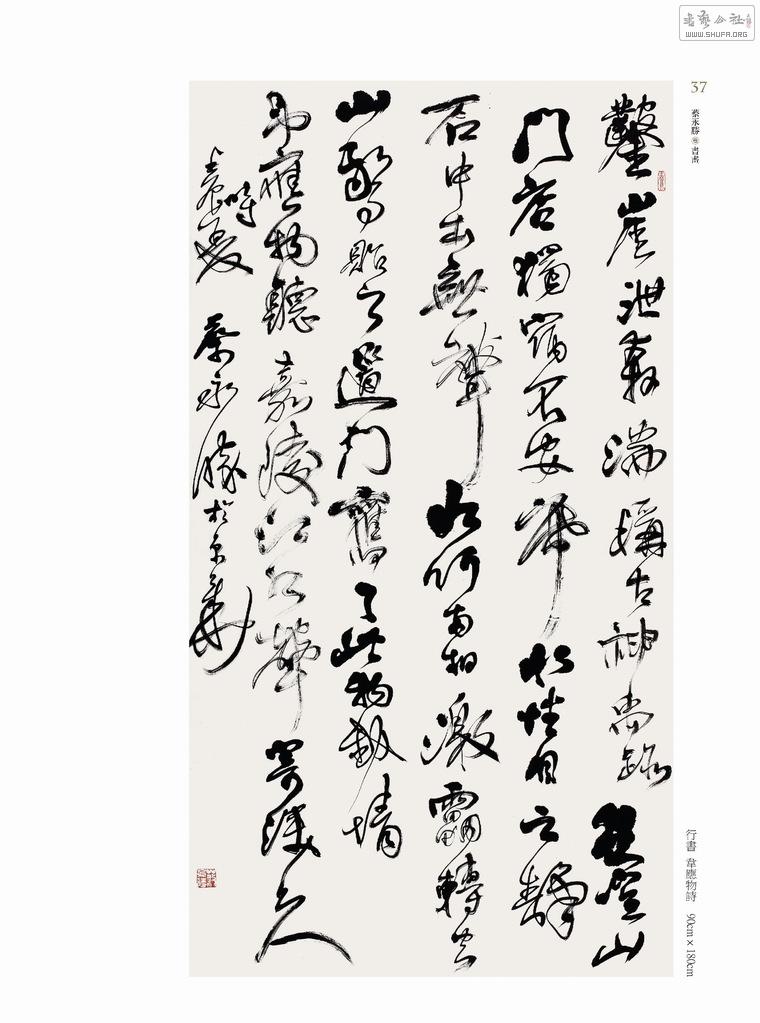 書藝公社
WWW.SHUFA.ORG
37
蔡永勝 書畫
鑿崖泄奔湍稱古神禹跡夜喧山
門店獨宿不安席水性自云靜
石中本無聲如何兩相激雷轉空
山驚貽之道門舊了此物我情
韋應物聽嘉陵江水聲寄深上人
時夏 蔡永勝於京華
行書 韋應物詩 90cm×180cm